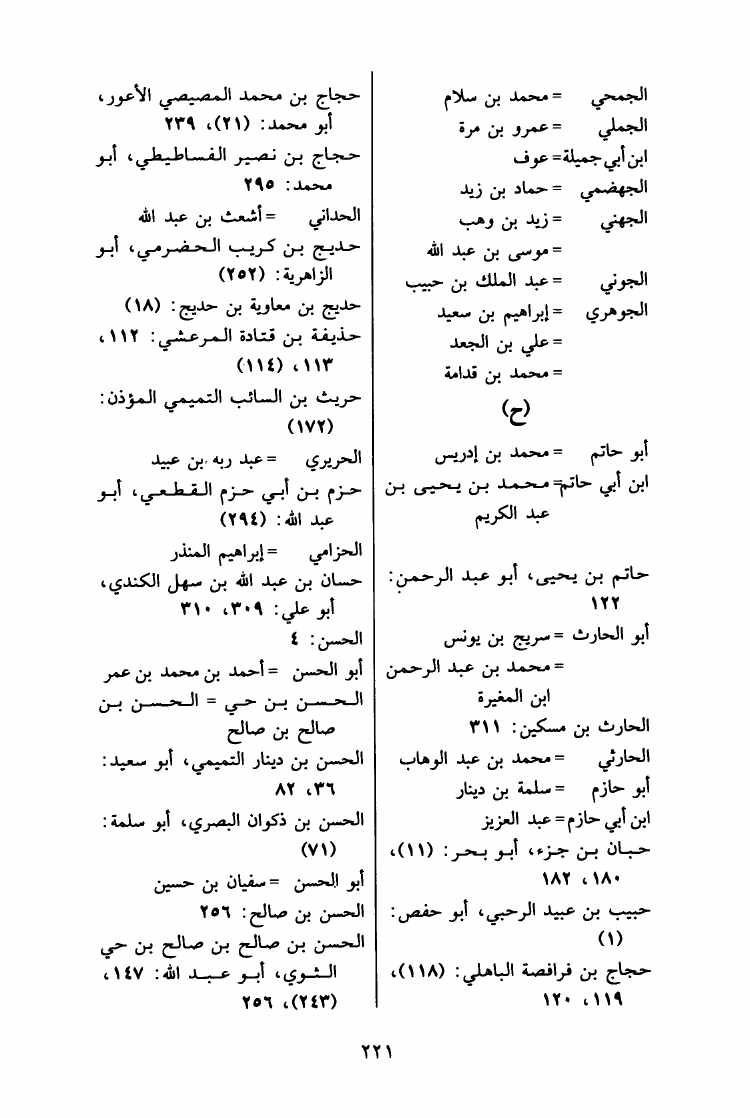 الجمحي = محمد بن سلام
الجملي = عمرو بن مرة
ابن أبي جميلة = عوف
الجهضمي = حماد بن زيد
الجهني = زيد بن وهب
= موسى بن عبد الله
الجوني = عبد الملك بن حبيب
الجوهري = إبراهيم بن سعيد
= علي بن الجعد
= محمد بن قدامة
(ح)
أبو حاتم = محمد بن إدريس
ابن أبي حاتم = محمد بن يحيى بن
عبد الكريم
حاتم بن يحيى، أبو عبد الرحمن:
١٢٢
أبو الحارث = سريج بن يونس
= محمد بن عبد الرحمن
ابن المغيرة
الحارث بن مسكين: ٣١١
الحارثي = محمد بن عبد الوهاب
أبو حازم = سلمة بن دينار
ابن أبي حازم = عبد العزيز
حبان بن جزء، أبو بحر: (١١)،
١٨٠، ١٨٢
حبيب بن عبيد الرحبي، أبو حفص:
(١)
حجاج بن فرافصة الباهلي: (١١٨)،
١١٩، ١٢٠
حجاج بن محمد المصيصي الأعور،
أبو محمد: (٢١)، ٢٣٩
حجاج بن نصير الفساطيطي، أبو
محمد: ٢٩٥
الحداني = أشعث بن عبد الله
حديج بن كريب الحضرمي، أبو
الزاهرية: (٢٥٢)
حديج بن معاوية بن حديج: (١٨)
حذيفة بن قتادة المرعشي: ١١٢،
١١٣، (١١٤)
حريث بن السائب التميمي المؤذن:
(١٧٢)
الحريري = عبد ربه بن عبيد
حزم بن أبي حزم القطعي، أبو
عبد الله: (٢٩٤)
الحزامي = إبراهيم المنذر
حسان بن عبد الله بن سهل الكندي،
أبو علي: ٣٠٩، ٣١٠
الحسن: ٤
أبو الحسن = أحمد بن محمد بن عمر
الحسن بن حي = الحسن بن
صالح بن صالح
الحسن بن دينار التميمي، أبو سعيد:
٣٦، ٨٢
الحسن بن ذكوان البصري، أبو سلمة:
(٧١)
أبو الحسن = سفيان بن حسين
الحسن بن صالح: ٢٥٦
الحسن بن صالح بن صالح بن حي
الثوي، أبو عبد الله: ١٤٧،
(٢٤٣)، ٢٥٦
٢٢١